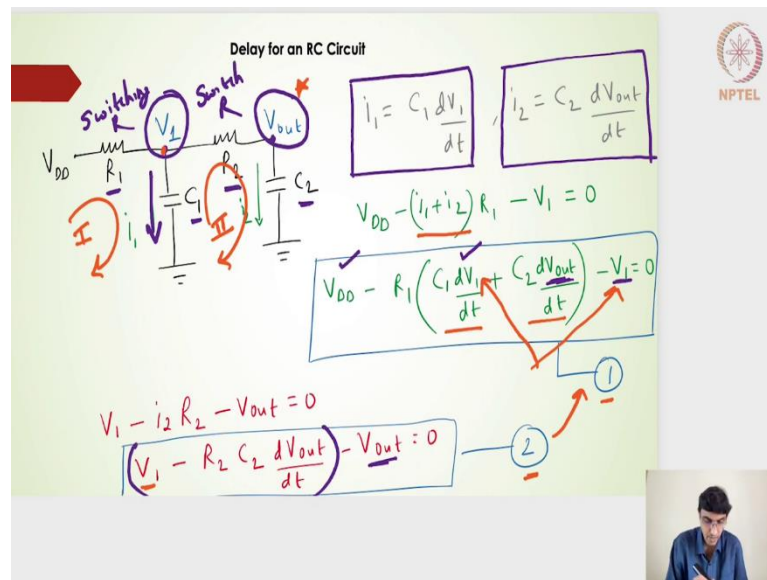 Delay for an RC Circuit
NPTEL
Switching
R
Switch
R
V1
Vout
VDD
R1
R2
C1
C2
I
i1
II
i2
i1 = C1 dV1/dt , i2 = C2 dVout/dt
VDD - (i1+i2) R1 - V1 = 0
VDD - R1 (C1 dV1/dt + C2 dVout/dt) - V1 = 0
1
V1 - i2 R2 - Vout = 0
(V1 - R2 C2 dVout/dt) - Vout = 0
2